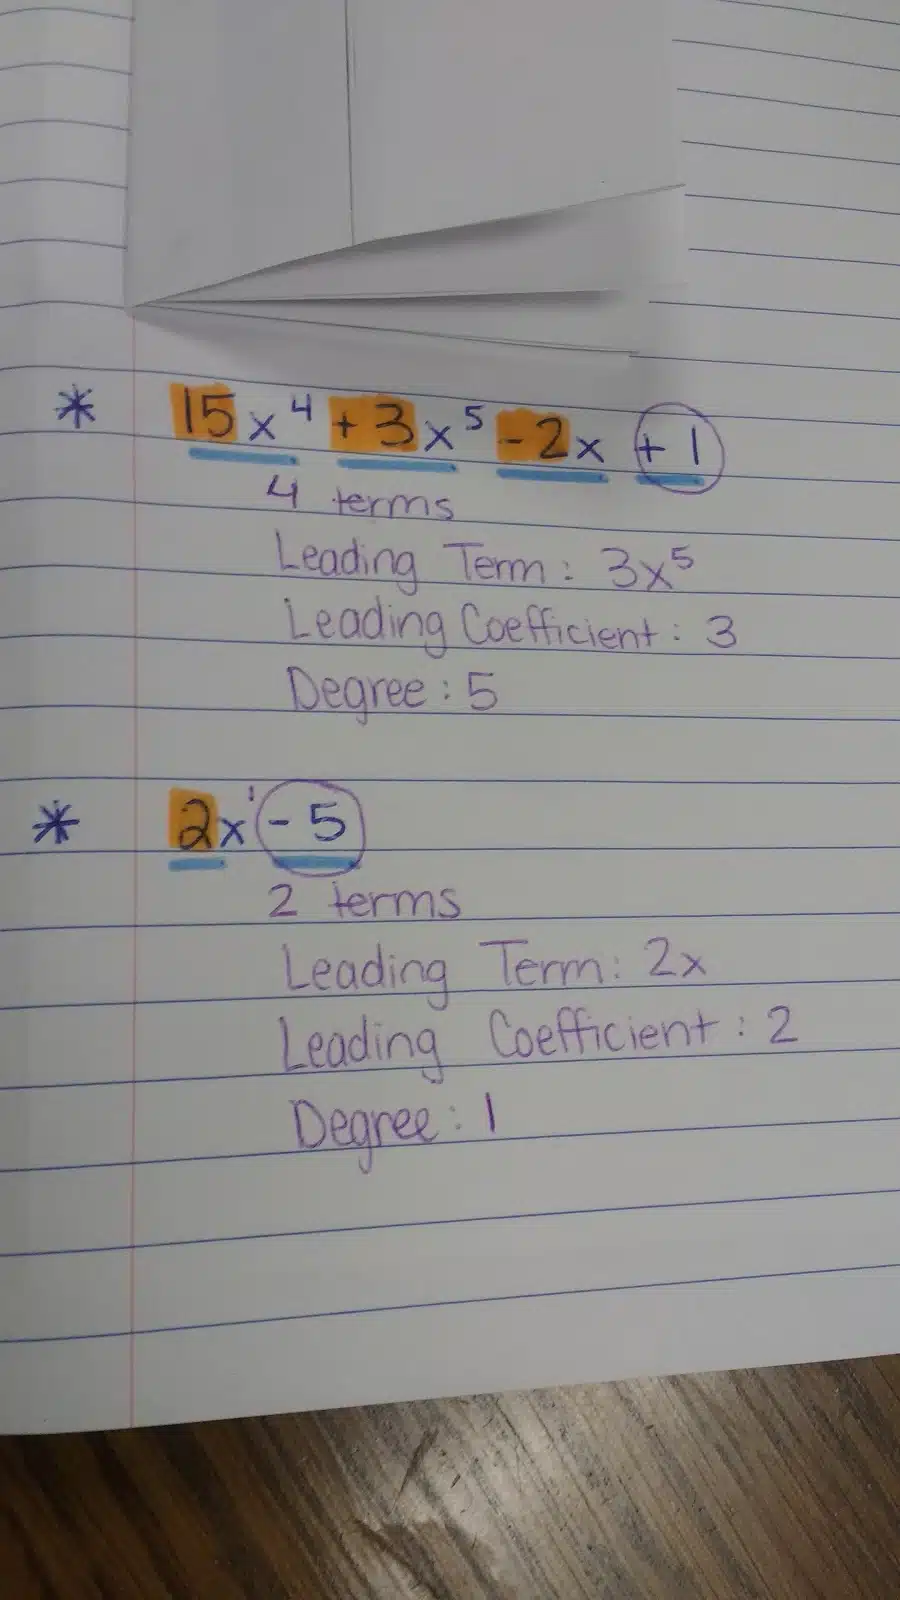 * 15x⁴ + 3x⁵ - 2x + 1
4 terms
Leading Term: 3x⁵
Leading Coefficient: 3
Degree: 5
* 2x¹ - 5
2 terms
Leading Term: 2x
Leading Coefficient: 2
Degree: 1